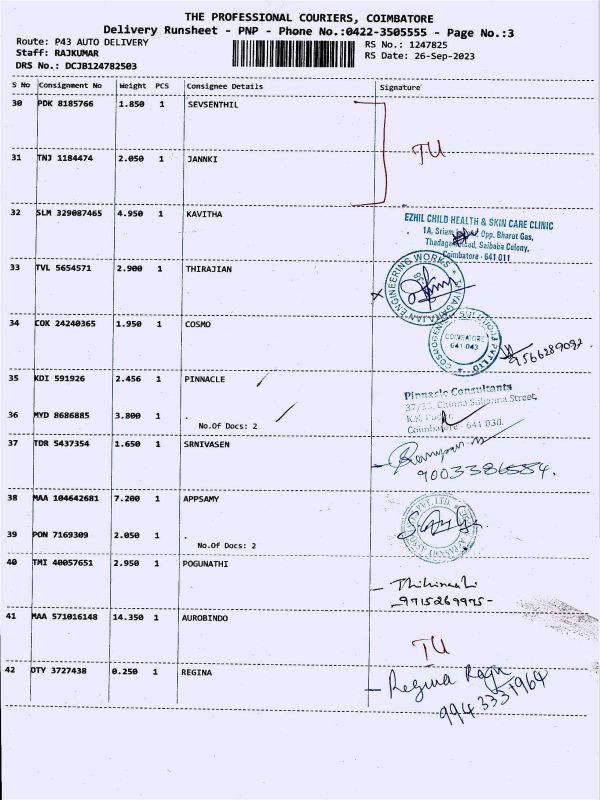 THE PROFESSIONAL COURIERS, COIMBATORE
Delivery Runsheet - PNP - Phone No.:0422-3505555 - Page No.:3
Route: P43 AUTO DELIVERY
RS No.: 1247825
Staff: RAJKUMAR
RS Date: 26-Sep-2023
DRS No.: DCJB124782503
S No Consignment No Weight PCS Consignee Details Signature
30 PDK 8185766 1.850 1 SEVSENTHIL
31 TNJ 1184474 2.050 1 JANNKI
TU
32 SLM 329087465 4.950 1 KAVITHA
EZHIL CHILD HEALTH & SKIN CARE CLINIC
1A, Sriam Opp. Bharat Gas,
Saibaba Colony,
Coimbatore - 641 011
33 TVL 5654571 2.900 1 THIRAJIAN
ENGINEERING WORKS
34 COK 24240365 1.950 1 COSMO
COIMBATORE
641 043
9566289092
35 KDI 591926 2.456 1 PINNACLE
Pinnacle Consultants
Street,
Coimbatore - 641 038.
36 MYD 8686885 3.800 1 .
No.Of Docs: 2
37 TDR 5437354 1.650 1 SRNIVASEN
9003386554.
38 MAA 104642681 7.200 1 APPSAMY
PVT. LTD.
39 PON 7169309 2.050 1 .
No.Of Docs: 2
40 TMI 40057651 2.950 1 POGUNATHI
9715269975-
41 MAA 571016148 14.350 1 AUROBINDO
TU
42 OTY 3727438 0.250 1 REGINA
Regina Raju
994 3331964